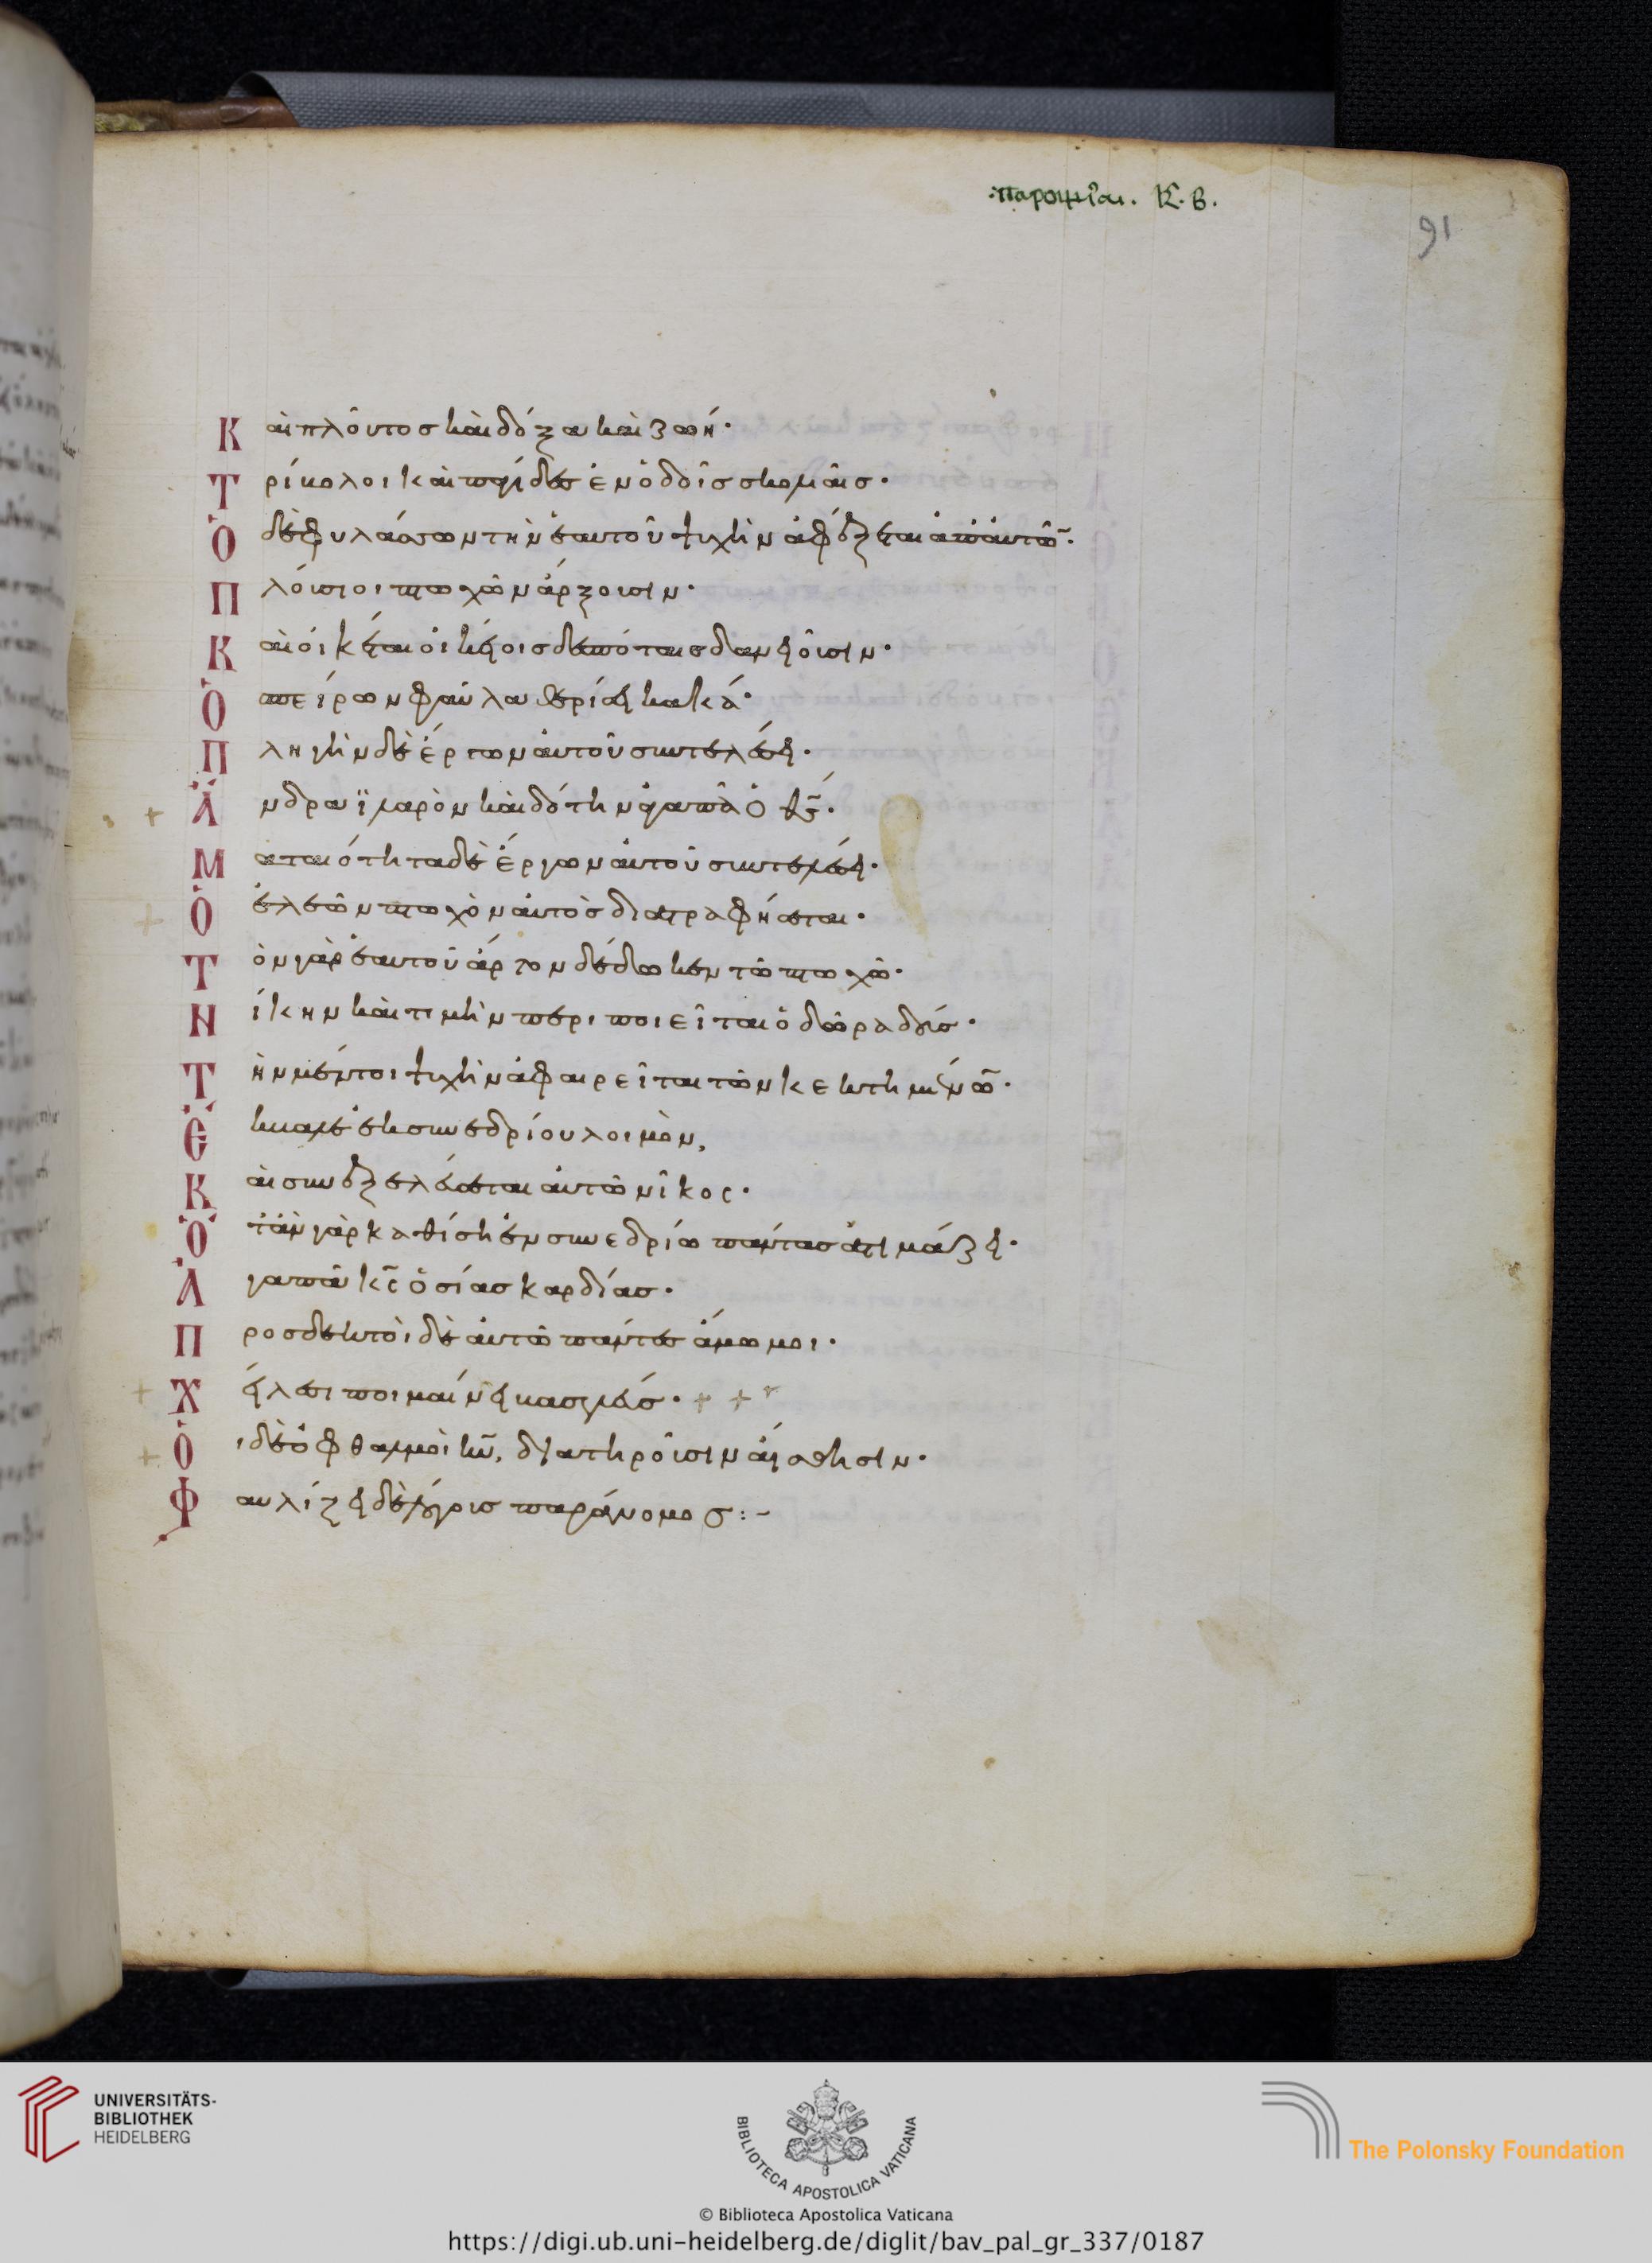 παροιμίαι. Κ. Β.
91
Καὶ πλοῦτος καὶ δόξα καὶ ζωή·
Τρίβολοι καὶ παγίδες ἐν ὁδοῖς σκολιαῖς·
Ὁ δὲ φυλάσσων τὴν ἑαυτοῦ ψυχὴν ἀφέξεται ἀπ' αὐτῶ̅·
Πλούσιοι πτωχῶν ἄρξουσιν·
Καὶ οἰκέται ἰδίοις δεσπόταις δανειοῦσιν·
Ὁ σπείρων φαῦλα θερίσει κακά·
Πληγὴν δὲ ἔργων αὐτοῦ συντελέσει·
Ἄνδρα ἱλαρὸν καὶ δότην ἀγαπᾶ ὁ θ̅ς̅·
Ματαιότητα δὲ ἔργων αὐτοῦ συντελέσει·
Ὁ ἐλεῶν πτωχὸν αὐτὸς διατραφήσεται·
Τὸν γὰρ ἑαυτοῦ ἄρτον δέδωκεν τῶ πτωχῶ·
Νίκην καὶ τιμὴν περιποιεῖται ὁ δῶρα δούς·
Τὴν μέντοι ψυχὴν ἀφαιρεῖται τῶν κεκτημένω̅·
Ἔκβαλε ἐκ συνεδρίου λοιμὸν,
Καὶ συνεξελεύσεται αὐτῶ νῖκος·
Ὅταν γὰρ καθίσῃ ἐν συνεδρίω πάντας ἀτιμάζει·
Ἀγαπᾶ κ̅ς̅ ὁσίας καρδίας·
Προσδεκτοὶ δὲ αὐτῶ πάντες ἄμωμοι·
Χείλεσι ποιμαίνει βασιλεύς· + + +
Οἱ δὲ ὀφθαλμοὶ κ̅υ̅, διατηροῦσιν αἴσθησιν·
Φαυλίζει δὲ λόγους παράνομος:-
UNIVERSITÄTS-
BIBLIOTHEK
HEIDELBERG
BIBLIOTECA APOSTOLICA VATICANA
The Polonsky Foundation
© Biblioteca Apostolica Vaticana
https://digi.ub.uni-heidelberg.de/diglit/bav_pal_gr_337/0187